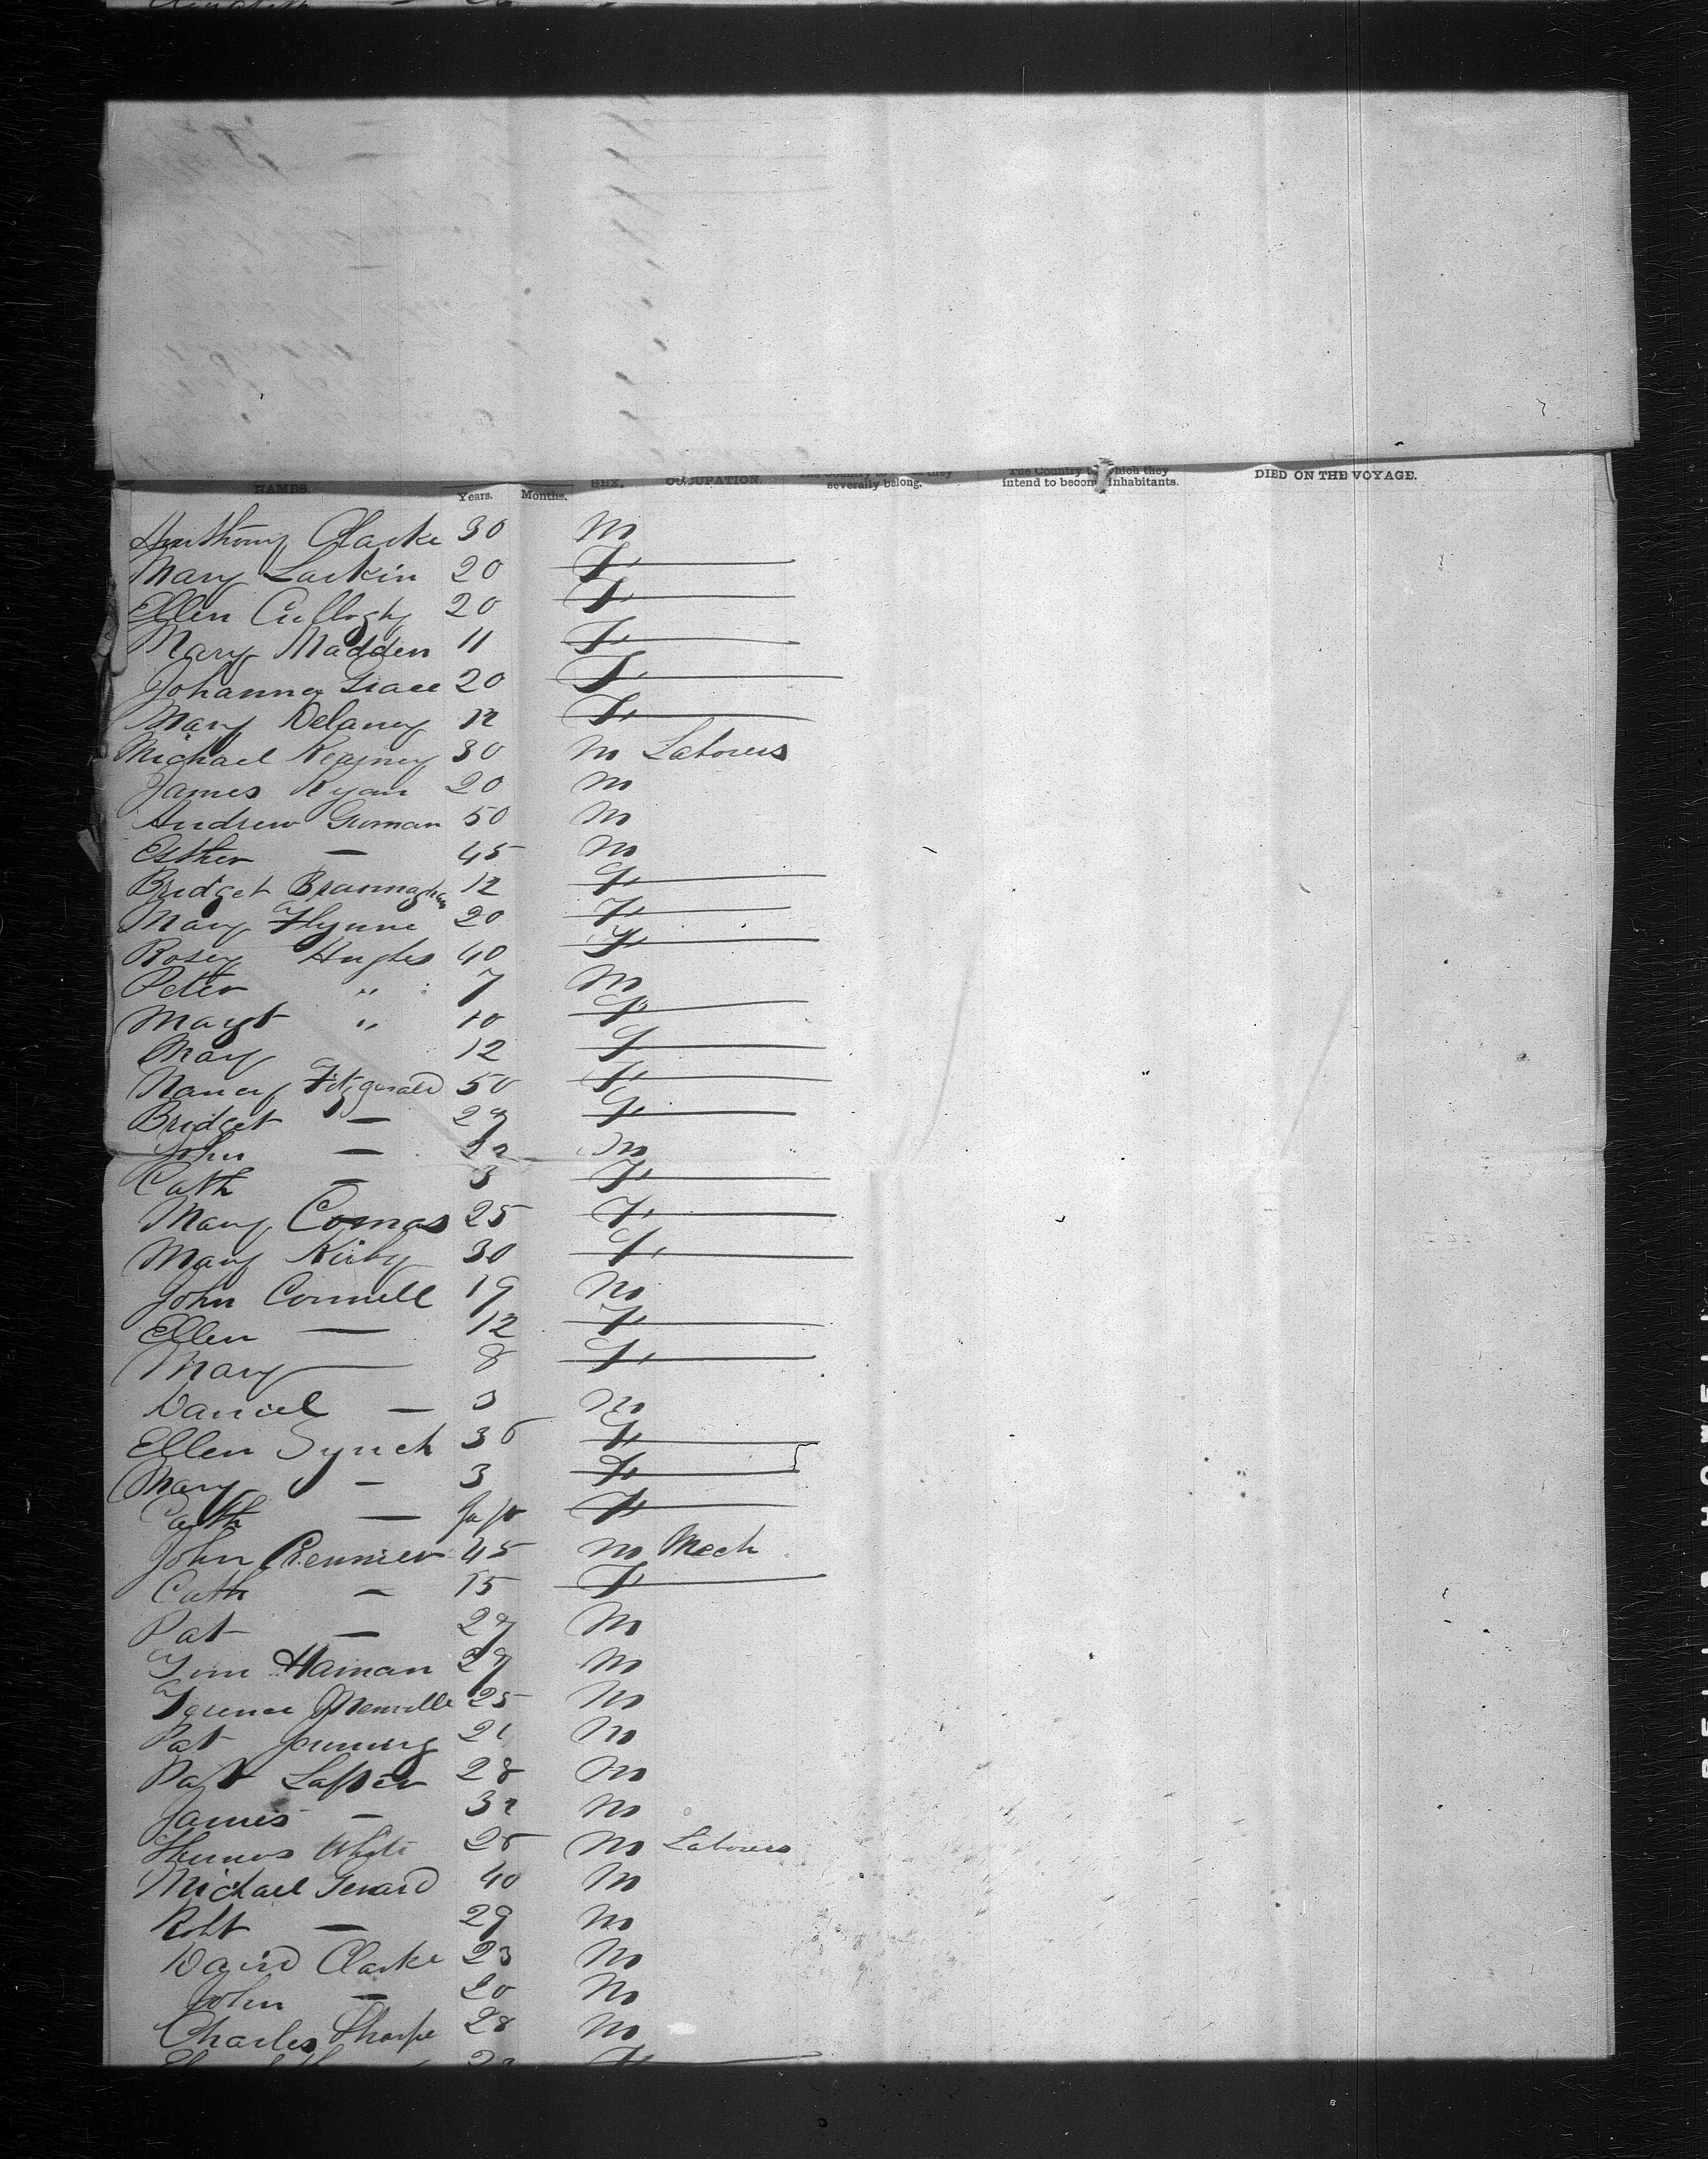 NAMES. Years. Months. SEX. OCCUPATION. The Country to they severally belong. The Country to which they intend to become inhabitants. DIED ON THE VOYAGE.
Anthony Clarke 30 M
Mary Larkin 20 F
Ellen Cullogty 20 F
Mary Madden 11 F
Johanna Grace 20 F
Mary Delaney 12 F
Michael Kearney 30 M Laborers
James Ryan 20 M
Andrew Gorman 50 M
Esther — 45 M
Bridget Brannaghan 12 F
Mary Flynne 20 F
Rosey Hughes 40 F
Peter " 7 M
Margt " 10 F
Mary 12 F
Nancy Fitzgerald 50 F
Bridget — 29 F
John — 22 M
Cath — 3 F
Mary Comas 25 F
Mary Kirby 30 F
John Connell 19 M
Ellen — 12 F
Mary — 8 F
Daniel — 3 M
Ellen Synch 36 F
Mary — 3 F
Cath — F
John 45 M Mech
Cath — 15 F
Pat — 29 M
Tim Hainan 29 M
Terence 25 M
Pat 21 M
Pat 28 M
James — 32 M
Thomas White 25 M Laborers
Michael Gerard 40 M
Robt — 29 M
David Clarke 23 M
John — 20 M
Charles Tharpe 28 M